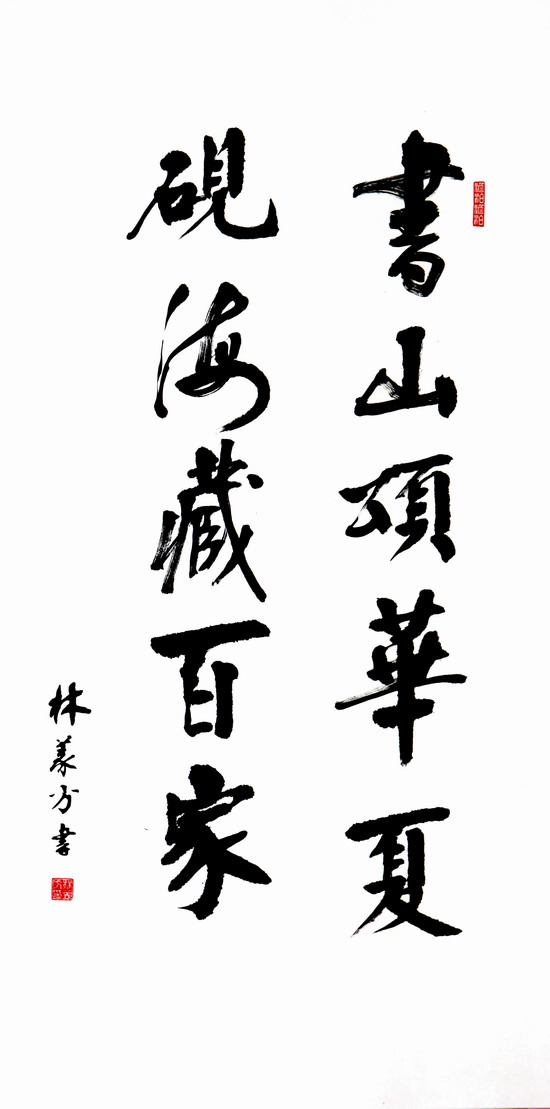 書山頌華夏
硯海藏百家
林 書